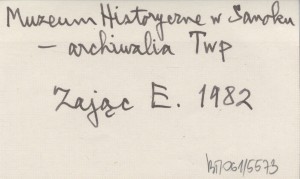 Muzeum Historyczne w Sanoku
- archiwalia Twp
Zając E. 1982
BП/061/5573